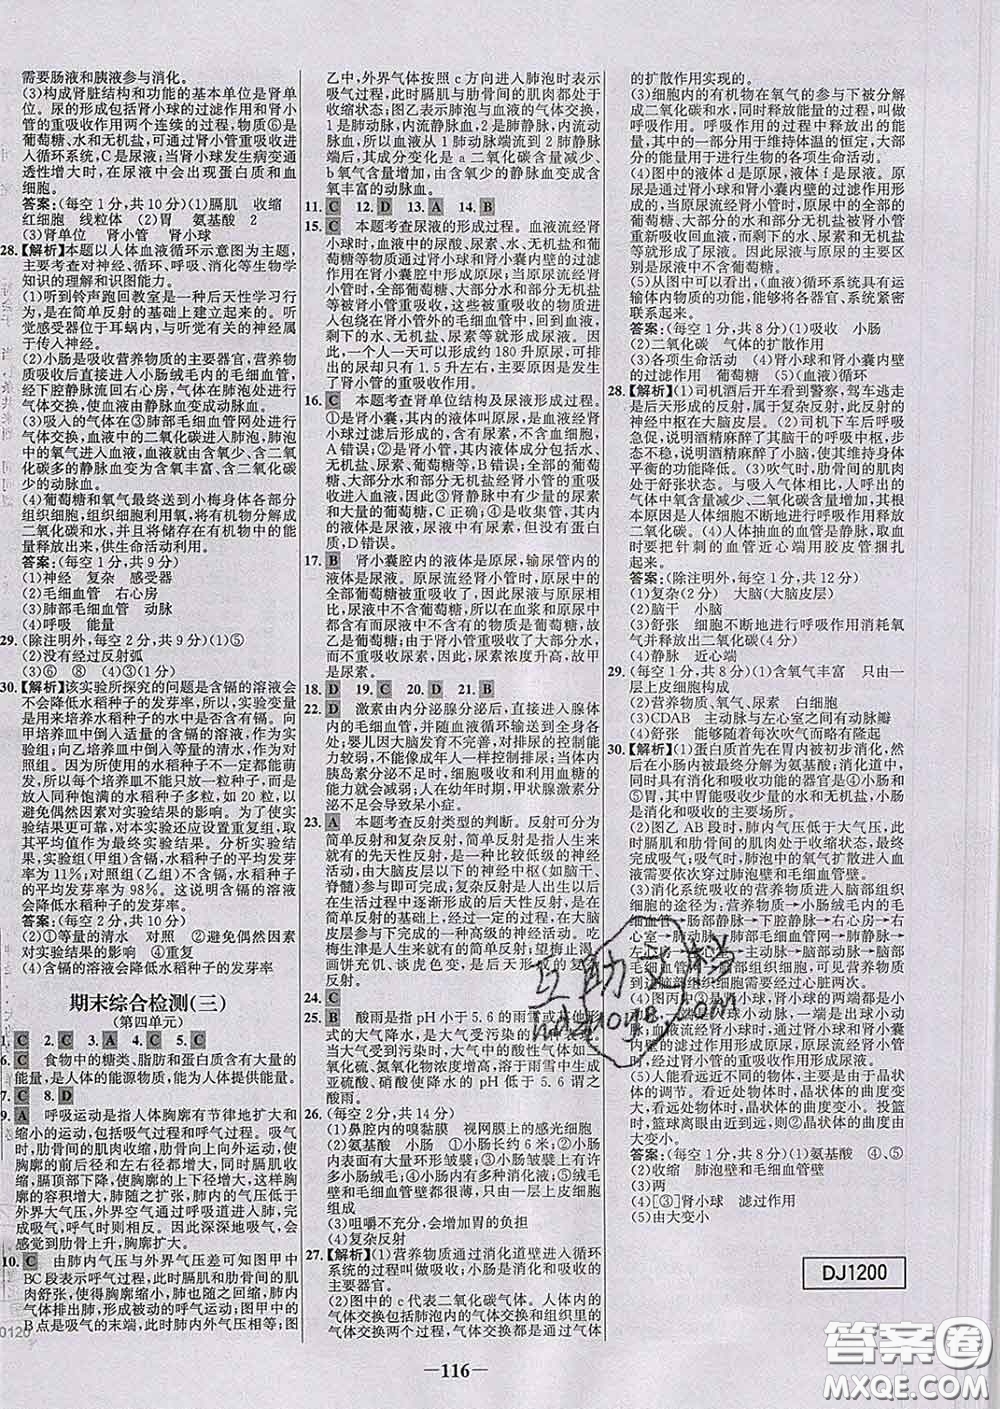 需要肠液和胰液参与消化。
(3)构成肾脏结构和功能的基本单位是肾单
位。尿的形成包括肾小球的过滤作用和肾小
管的重吸收作用两个连续的过程,物质⑥是
葡萄糖、水和无机盐,可通过肾小管重吸收
进入循环系统,C是尿液;当肾小球发生病变通
透性增大时,在尿液中会出现蛋白质和血
细胞。
答案:(每空1分,共10分)(1)膈肌 收缩
红细胞 线粒体 (2)胃 氨基酸 2
(3)肾单位 肾小管 肾小球
28.【解析】本题以人体血液循环示意图为主题,
主要考查对神经、循环、呼吸、消化等生物学
知识的理解和识图能力。
(1)听到铃声跑回教室是一种后天性学习行
为,是在简单反射的基础上建立起来的。听
觉感受器位于耳蜗内,与听觉有关的神经属
于传入神经。
(2)小肠是吸收营养物质的主要器官,营养物
质吸收后直接进入小肠绒毛内的毛细血管,
经下腔静脉流回右心房,气体在肺泡处进行
气体交换,使血液由静脉血变成动脉血。
(3)吸入的气体在③肺部毛细血管网处进行
气体交换,血液中的二氧化碳进入肺泡,肺泡
中的氧气进入血液,因此,血液由含氧少、含二
氧化碳多的静脉血变为含氧丰富、含二氧化碳少
的动脉血。
(4)葡萄糖和氧气最终送到小梅身体各部分
组织细胞,组织细胞利用氧,将有机物分解成
二氧化碳和水,并且将储存在有机物中的能
量释放出来,供生命活动利用。
答案:(每空1分,共9分)
(1)神经 复杂 感受器
(2)毛细血管 右心房
(3)肺部毛细血管 动脉
(4)呼吸 能量
29.(除注明外,每空2分,共9分)(1)⑤
(2)没有经过反射弧
(3)⑥ ⑧ (4)③(1分)
30.【解析】该实验所探究的问题是含镉的溶液会
不会降低水稻种子的发芽率,所以,实验变量
是用来培养水稻种子的水中是否含有镉。向
甲培养皿中倒入适量的含镉的溶液,作为实
验组;向乙培养皿中倒入等量的清水,作为对
照组。因为所做的实验不能受到偶然因素的
干扰,所以,每个培养皿不能只放一粒种子,而
应多放相同饱满的水稻种子多粒,如20粒,以
避免偶然因素对实验结果的影响。为了使实
验结果更可靠,本实验还应设置重复组,以
取其平均值作为最终实验结果。分析实验结
果,实验组(甲组)含镉,水稻种子的平均发芽
率为11%;对照组(乙组)不含镉,水稻种子
的平均发芽率为98%。这说明含镉的溶液会
降低水稻种子的发芽率。
答案:(每空2分,共10分)
(2)①等量的清水 对照 ②避免偶然因素
对实验结果的影响 ④重复
(4)含镉的溶液会降低水稻种子的发芽率
期末综合检测(三)
(第四单元)
1. C 2. C 3. A 4. C 5. C
6. C 食物中的糖类、脂肪和蛋白质含有大量的
能量,是人体的能源物质,能为人体提供能量。
7. C 8. D
9. A 呼吸运动是指人体胸廓有节律地扩大和
缩小的运动,包括吸气过程和呼气过程。吸气
时,肋骨间的肌肉收缩,肋骨向上向外运动,使
胸廓的前后径和左右径都增大;同时膈肌收缩,
膈顶部下降,使胸廓的上下径也增大。这样,
胸廓的容积增大,肺随之扩张,肺内气压低于
外界大气压力,外界空气就通过呼吸道进入肺,
完成吸气,呼气时则相反。因此深深地吸气,会
感觉到肋骨上升,胸廓扩大。
10. C 由肺内气压与外界气压差可知图甲中
BC段表示呼气过程,此时膈肌和肋骨间的肌
肉舒张,胸廓回缩,肺也随之回缩,肺内
气体排出肺,形成的呼气运动;图甲中的
B点是吸气的末端,此时肺内外气压相等;图
乙中,外界气体按照c方向进入肺泡时表示
吸气过程,此时膈肌与肋骨间的肌肉都处于
收缩状态;图乙表示肺泡与血液的气体交换,
1是肺动脉端,内流静脉血,2是肺静脉端,内
流动脉血。血液从1肺动脉端流到2肺静脉
端后,其成分变化是a二氧化碳含量减少、
b氧气含量增加,由含氧少的静脉血变成含
氧丰富的动脉血。
11. C 12. D 13. A 14. B
15. C 本题考查尿液的形成过程。血液流经肾
小球时,血液中的尿酸、尿素、水、无机盐和葡
萄糖等物质通过肾小球和肾小囊内壁的过滤
作用到肾小囊腔中形成原尿;当原尿流经肾小
管时,全部葡萄糖、大部分水和部分无机盐
等被肾小管重新吸收,这些被重吸收的物质进
入包绕在肾小管外的毛细血管中,送回到血液里,
剩下的水、无机盐、尿素等就形成尿液。因此,
一个人一天可以形成约180升原尿,可
排出的尿却只有1.5升左右,主要原因是发生
了肾小管的重吸收作用。
16. C 本题考查肾单位结构及尿液形成过程。
①是肾小囊,其内的液体叫原尿,是血液经肾
小球过滤后形成的,含有尿素,不含血细胞,
A错误;②是肾小管,其内液体成分包括水、
无机盐、葡萄糖和尿素,B错误;全部的葡萄
糖、大部分的水和部分的无机盐等物质被重
新吸收,因此③肾静脉中有少部分的尿素和
大量的葡萄糖,C正确;④是收集管,其内流
的液体是尿液,其内除水以外,没有蛋白质,
D错误。
17. B 肾小囊腔内的液体是原尿,输尿管内的
液体是尿液。原尿流经肾小管时,全部的葡萄糖
被重吸收,使尿液中不含葡萄糖。
所以在血浆和原尿中都含有而尿液中没有葡萄糖,
故乙是葡萄糖;由于肾小管重吸收了大部分水
而没有重吸收尿素,所以尿素浓度升高,故甲
是尿素。
18. D 19. C 20. D 21. B
22. D 激素由内分泌腺分泌后,直接进入腺体
内的毛细血管,并随血液循环输送到全身各
处;婴儿因大脑发育不完善,对排尿的控制能力
较弱,不能像成年人一样控制排尿;当体内
胰岛素分泌不足时,细胞吸收和利用血糖的
能力减弱;人在幼年时期,甲状腺激素分
泌不足会导致呆小症。
23. A 本题考查反射类型的判断。反射可分为
简单反射和复杂反射,简单反射是指人生来
就有的先天性反射,是一种比较低级的神经活动,
由大脑皮层以下的神经中枢(如脑干、
脊髓)参与即可完成;复杂反射是人出生以后
在生活过程中逐渐形成的后天性反射,是在
简单反射的基础上,经过一定的过程,在大脑
皮层参与下完成的一种高级的神经活动。吃
梅生津是人生来就有的简单反射;望梅止渴、
画饼充饥、谈虎色变是后天形成的复杂
反射。
24. C
25. B 酸雨是指pH小于5.6的雨雪或其他形
式的大气降水,是大气受污染的一种表现。
当大气受到污染时,大气中的酸性气体如二氧化
硫、氮氧化物等溶于雨雪中生成
亚硫酸、硝酸使降水的pH低于5.6谓之
酸雨。
26.(每空2分,共14分)
(1)鼻腔内的嗅黏膜 视网膜上的感光细胞
(2)氨基酸 小肠 ①小肠长约6米;②小肠
内壁有大量环形皱襞;③小肠皱襞表面有许
多小肠绒毛;④小肠内含有多种消化液;⑤绒毛
壁和毛细血管壁都很薄,只由一层上皮细胞
组成
(3)咀嚼不充分,会增加胃的负担
(4)复杂反射
27.【解析】(1)营养物质通过消化道壁进入循环
系统的过程叫做吸收;小肠是消化和吸收的
主要器官。
(2)图中的c代表二氧化碳气体。在人体内的
气体交换包括肺泡内的气体交换和组织里的
气体交换两个过程,气体交换都是通过气体
的扩散作用实现的。
(3)细胞内的有机物在氧气的参与下被分解
成二氧化碳和水,同时释放能量的过程,叫做
呼吸作用。呼吸作用的过程中所释放的能量,
其中的一部分用于维持体温的恒定,大部分
能量用于进行生物的各项生命活动。
(4)图中的液体d是原尿,液体f是尿液,原尿
是血液通过肾小球和肾小囊内壁的过滤作用
形成的,而尿液是原尿中的全部的葡萄糖、大部
分的水和部分的无机盐被肾小管重新吸收,
而剩下的水、无机盐和尿素等物质形成的,
原尿和尿液的主要区
别是尿液中不含葡萄糖。
(5)从图中可以看出,(血液)循环系统具有运
输体内物质的功能,能够将各器官、系统紧密
联系起来。
答案:(每空1分,共8分)(1)吸收 小肠
(2)二氧化碳 气体的扩散作用
(3)各项生命活动 (4)肾小球和肾小囊内壁
的过滤作用 葡萄糖 (5)(血液)循环
28.【解析】(1)司机酒后开车看到警察,驾车逃走
是后天形成的反射,属于复杂反射,此反射的
神经中枢在大脑皮层。(2)司机下车后呼吸
急促,说明酒精麻醉了其脑干的呼吸中枢,走
步不稳,说明酒精麻醉了小脑,使其维持身体
平衡的功能降低。(3)吹气时,肋骨间的肌肉
处于舒张状态。与吸入的气体相比,人呼出的
气体中二氧化碳含量增加,氧含量减少,其根
本原因是人体细胞不断地进行呼吸作用释放
二氧化碳。(4)人体抽血的血管是静脉,取血
时要把针刺的血管近心端用胶皮管捆扎
起来。
答案:(除注明外,每空1分,共12分)
(1)复杂(2分) 大脑(大脑皮层)
(2)脑干 小脑
(3)舒张 细胞不断地进行呼吸作用消耗氧
气并释放出二氧化碳(4分)
(4)静脉 近心端
29.(每空1分,共8分)(1)含氧气丰富 只由一
层上皮细胞构成
(2)营养物质、氧气、尿素 白细胞
(3)CDAB 主动脉与左心室之间有动脉瓣
(4)舒张 能够随着每次吹气而略有隆起
30.【解析】(1)蛋白质首先在胃内被初步消化,然
后在小肠内被最终分解为氨基酸;消化道中,
同时具有消化和吸收功能的器官是④小肠和
⑤胃,其中胃能吸收少量的水和无机盐,小肠
是消化和吸收的主要场所。
(2)图乙AB段时,肺内气压低于大气压,此
时膈肌和肋骨间的肌肉处于收缩状态,最终
完成吸气;吸气时,肺泡中的氧气扩散进入血
液需要依次穿过肺泡壁和毛细血管壁。
(3)消化系统吸收的营养物质进入脑部组织
细胞的途径为:营养物质→小肠绒毛内的毛
细血管→肠部静脉→下腔静脉→右心房→右
心室→肺动脉→肺部毛细血管网→肺静脉→
左心房→左心室→主动脉→脑部动脉→脑部毛细
血管网→脑部组织细胞,因此需要经过心脏两次。
(4)图丙中③是肾小球,肾小球中的液体是血液。
血液流经肾小球时,除血细胞和大分子蛋白质外,
其他物质通过肾小球和肾小囊内壁的过滤作用形成原尿,
经过肾小管的重吸收作用形成尿液。
(5)人能看远近不同的物体,主要是由于晶状体
的调节作用。看近处物体时,晶状体的曲度
变大,看远处物体时,晶状体的曲度变小。投篮
时,篮球离眼由近到远,则②晶状体的曲度由
大变小。
答案:(每空1分,共8分)(1)氨基酸 ④、⑤
(2)收缩 肺泡壁和毛细血管壁
(3)两
(4)[③]肾小球 滤过作用
(5)由大变小
DJ1200
—116—
互助文档
答案圈
MXQE.COM